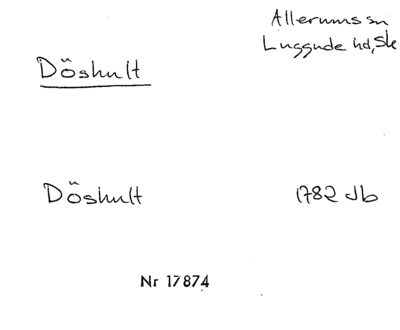 Allerums sn
Luggude hd, Sk
Döshult
Döshult 1782 Jb
Nr 17874